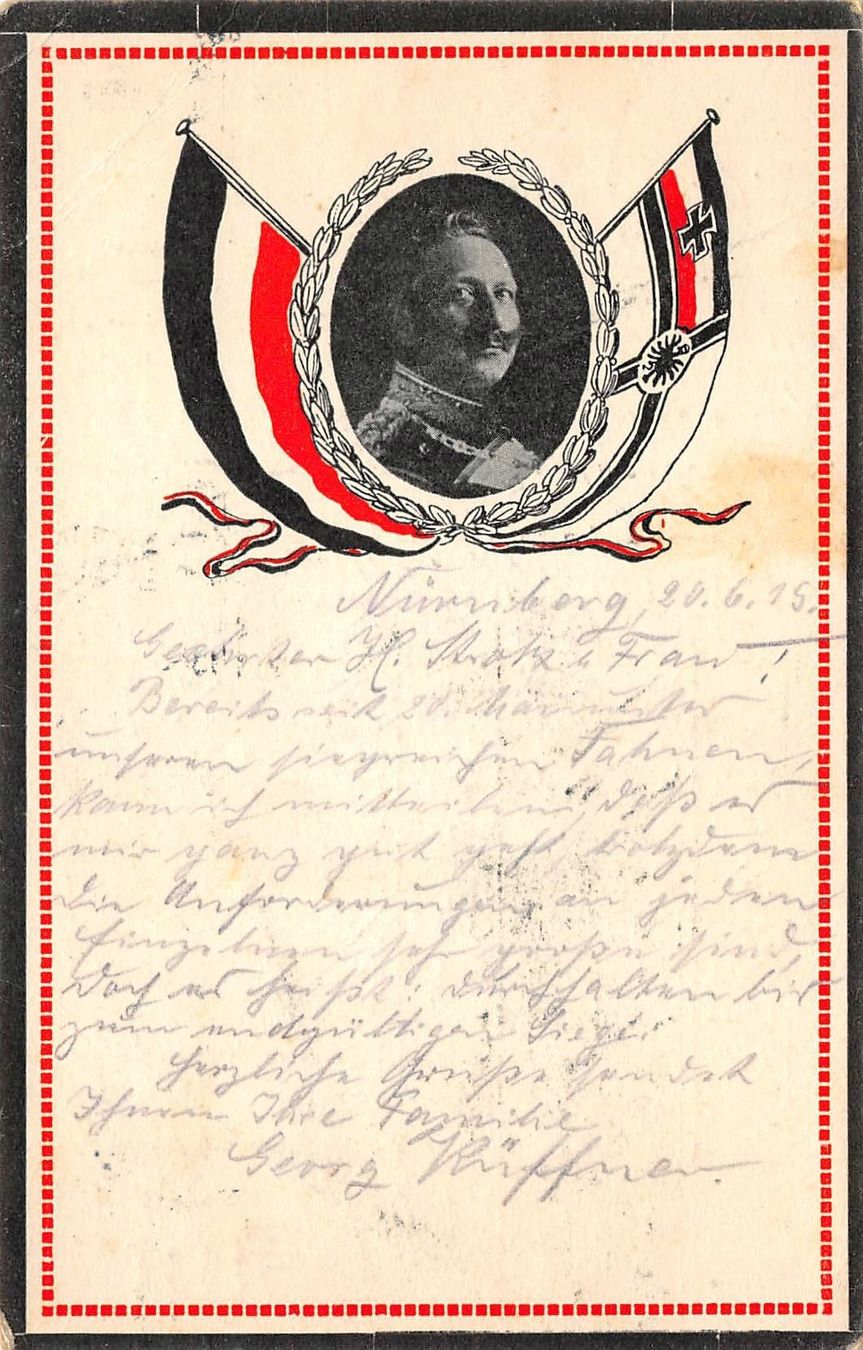 Nürnberg, 20.6.15.
Geehrter H. Strotz u Frau!
Bereits seit 20. Mai unter
unseren siegreichen Fahnen,
kann ich mitteilen, daß es
mir ganz gut geht, trotzdem
die Anforderungen an jeden
Einzelnen sehr große sind,
doch es heißt: durchhalten bis
zum endgültigen Siege.
Herzliche Grüße sendet
Ihnen Ihre Familie
Georg Küffner.